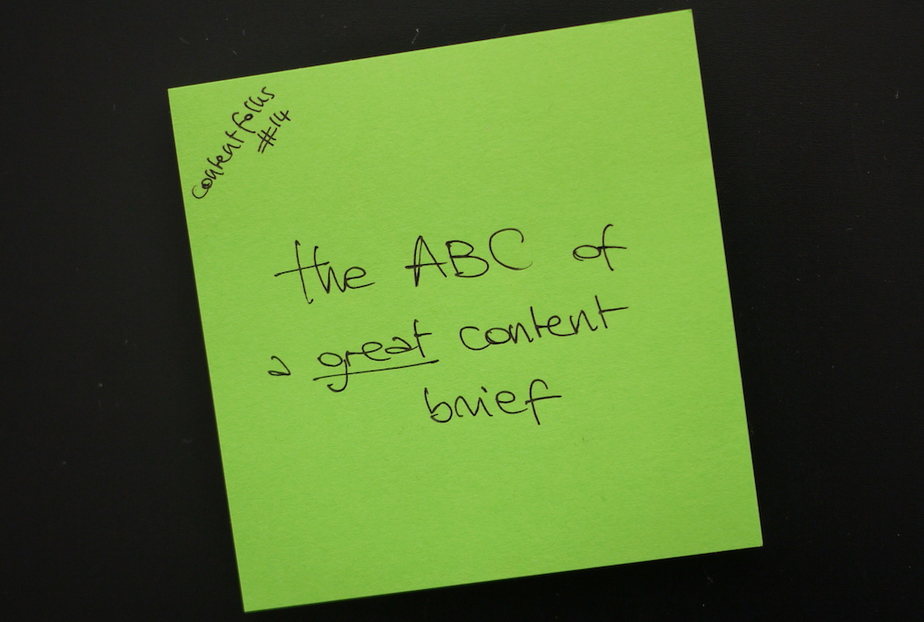 contentfolks
#14
the ABC of
a great content
brief